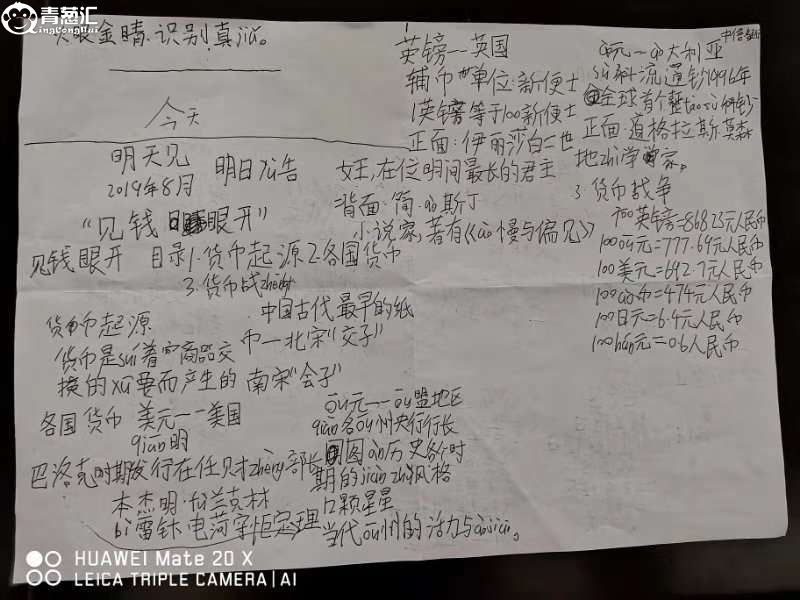 青葱汇
QingCongHui
火眼金睛.识别真jiǎ。
今天
明天见
2019年8月 明日预告
"见钱眼开"
见钱眼开 目录1.货币起源2.各国货币
3.货币战zhēng
货币起源
货币是suí着商品交
换的xū要而产生的
中国古代最早的纸
币一北宋"交子"
南宋"会子"
各国货币 美元一一美国
qiān明
巴洛克时期发行在任财zhèng部长
本杰明·fù兰克林
bì雷针.电荷守恒定理
英镑一一英国
辅币单位:新便士
1英镑等于100新便士
正面:伊丽莎白二世
女王,在位明间最长的君主
背面:简·ào斯丁
小说家,著有《ào慢与偏见》
ōu元一一ōu盟地区
qiān名ōu州央行行长
图àn历史各个时
期的jiàn zhù风格
12颗星星
当代ōu州的活力与
ào元一ào大利亚
sù料流通钞1996年
全球首个整tào sù料钞
正面:道格拉斯莫森
地zhì学家。
3.货币战争
100英镑=868.23元人民币
100ōu元=777.69元人民币
100美元=692.7元人民币
100ào币=474元人民币
100日元=6.4元人民币
100hán元=0.6人民币
中信
HUAWEI Mate 20 X
LEICA TRIPLE CAMERA | AI